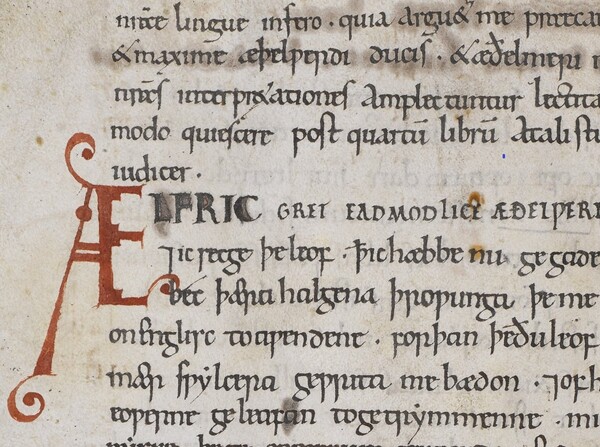 nr̄ae lingue infero · quia arguet me preca
& maxime æþelƿerdi ducis · & æðelmeri n
nr̄as interpretationes Amplectuntur lectita
modo quiescere post quartū librū A tali stu
iudicer ·
ÆLFRIC GRET EADMODLICE ÆÐELƿERD
⁊ ic secge þe leof · ꝥ ic hæbbe nu gegade
bec þæra halgena þroƿunga þe me
on englisc to aƿendene · forþan þe ðu leof
mær sƿylcera geƿrita me bædon · ⁊ of h
eoƿerne geleafan to getrymmenne · mi